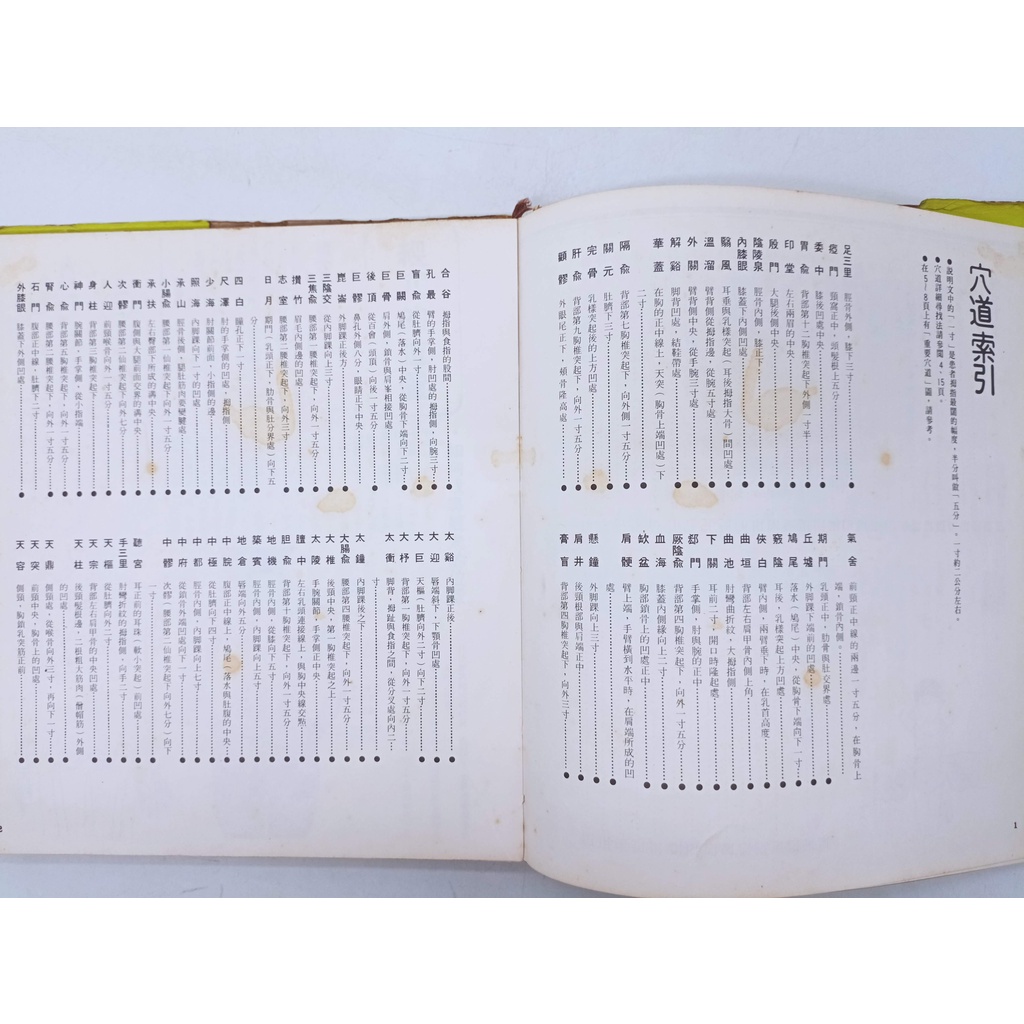 穴道索引
●說明文中的「一寸」是患者拇指最闊的幅度，半分叫做「五分」，一寸約二公分左右。
●穴道詳細尋找法請參閱4、15頁。
●在5～8頁上有「重要穴道」圖，請參考。
足三里 脛骨外側，膝下三寸
瘂門 頸窩正中，頭髮根上五分
委中 膝後凹處中央
胃兪 背部第十二胸椎突起下外側一寸半
印堂 左右兩眉的中央
殷門 大腿後側中央
陰陵泉 脛骨內側，膝正下
內膝眼 膝蓋下內側凹處
翳風 耳垂與乳樣突起（耳後拇指大骨）間凹處
溫溜 臂背側從拇指邊，從腕五寸處
外關 臂背側中央，從手腕三寸
解谿 脚背凹處，結鞋帶處
華蓋 在胸的正中線上，天突（胸骨上端凹處）下
二寸
隔兪 背部第七胸椎突起下，向外側一寸五分
關元 肚臍下三寸
完骨 乳樣突起後的上方凹處
肝兪 背部第九胸椎突起下，向外一寸五分
顴髎 外眼尾正下，頰骨隆高處
氣舍 前頸正中線的兩邊一寸五分，在胸骨上
端，鎖骨內側。
期門 乳頭正中，肋骨與肚交界處
丘墟 外脚踝下端前的凹處
鳩尾 落水（鳩尾）中央，從胸骨下端向下一寸
竅陰 耳後，乳樣突起上方凹處
俠白 臂內側，兩臂垂下時，在乳首高度
曲垣 背部左右肩甲骨內側上角
曲池 肘彎曲折紋，大拇指側
下關 耳前二寸，開口時隆起處
郄門 手掌側，肘與腕的正中
厥陰兪 背部第四胸椎突起下，向外一寸五分
血海 膝蓋內側緣向上二寸
缺盆 胸部鎖骨上的凹處正中
肩髃 臂上端，手臂橫到水平時，在肩端所成的凹
處
懸鐘 外脚踝向上三寸
肩井 後頸根部與肩端正中
膏盲 背部第四胸椎突起下，向外三寸
1
合谷 拇指與食指的股間
孔最 臂的手掌側，肘凹處的拇指側，向腕三寸
盲兪 從肚臍向外一寸
巨闕 鳩尾（落水）中央，從胸骨下端向下二寸
巨骨 肩外側，鎖骨與肩峯相接凹處
後頂 從百會（頭頂）向後一寸五分
巨髎 鼻孔外側八分，眼睛正下中央
崑崙 外脚踝正後方
三陰交 從內脚踝向上三寸
三焦兪 腰部第一腰椎突起下，向外一寸五分
攢竹 眉毛內側邊的凹處
志室 腰部第二腰椎突起下，向外三寸
日月 期門（乳頭正下，肋骨與肚分界處）向下五
分
四白 瞳孔正下一寸
尺澤 肘的手掌側的凹處，拇指側
少海 肘關節前面，小指側的邊
照海 內脚踝向下一寸的凹處
承山 脛骨後側，腿肚筋肉要變腱處
小腸兪 腰部第一仙椎突起下，向外一寸五分
承扶 左右臀部下所成的溝中央
衝門 腹側與大腿前面交界的溝中央
次髎 腰部第二仙椎突起下向外七分
人迎 前頸喉骨向外一寸五分
身柱 背部第三胸椎突起下
心兪 背部第五胸椎突起下，向外一寸五分
神門 腕關節，手掌側，從小指端
腎兪 腰部第二腰椎突起下，向外一寸五分
石門 腹部正中線，肚臍下二寸
外膝眼 膝蓋下外側凹處
太谿 內脚踝正後
大迎 唇端斜下，下顎骨凹處
大巨 天樞（肚臍向外二寸）向下二寸
大杼 背部第一胸椎突起下，向外一寸五分
太衝 脚背，拇趾與食指之間，從分叉處向內二
寸
太鐘 內脚踝後之下
大腸兪 腰部第四腰椎突起下，向外一寸五分
大椎 後頸中央，第一胸椎突起之上
太陵 手腕關節，手掌側正中央
膻中 左右乳頭連接線上，與胸中央線交點
胆兪 背部第十胸椎突起下，向外一寸五分
地機 脛骨內側，從膝向下五寸
築賓 脛骨內側，內脚踝向上五寸
地倉 唇端向外五分
中脘 腹部正中線上，鳩尾（落水與肚腹的中央
中極 從肚臍向下四寸
中都 脛骨內側，內脚踝向上七寸
中府 從鎖骨外端凹處向下一寸
中髎 次髎（腰部第二仙椎突起下向外七分）向下
一寸
聽宮 耳正前的耳珠（軟小突起）前凹處
手三里 肘彎折紋的拇指側，向小手二寸
天樞 從肚臍向外二寸
天宗 背部左右肩甲骨的中央凹處
天柱 後頸髮根邊，二根粗大筋肉（僧帽筋）外側
的凹處
天鼎 側頸，從喉骨向外三寸，再向下一寸
天突 前頸中央，胸骨上的凹處
天容 側頸，胸鎖乳突筋正前
2